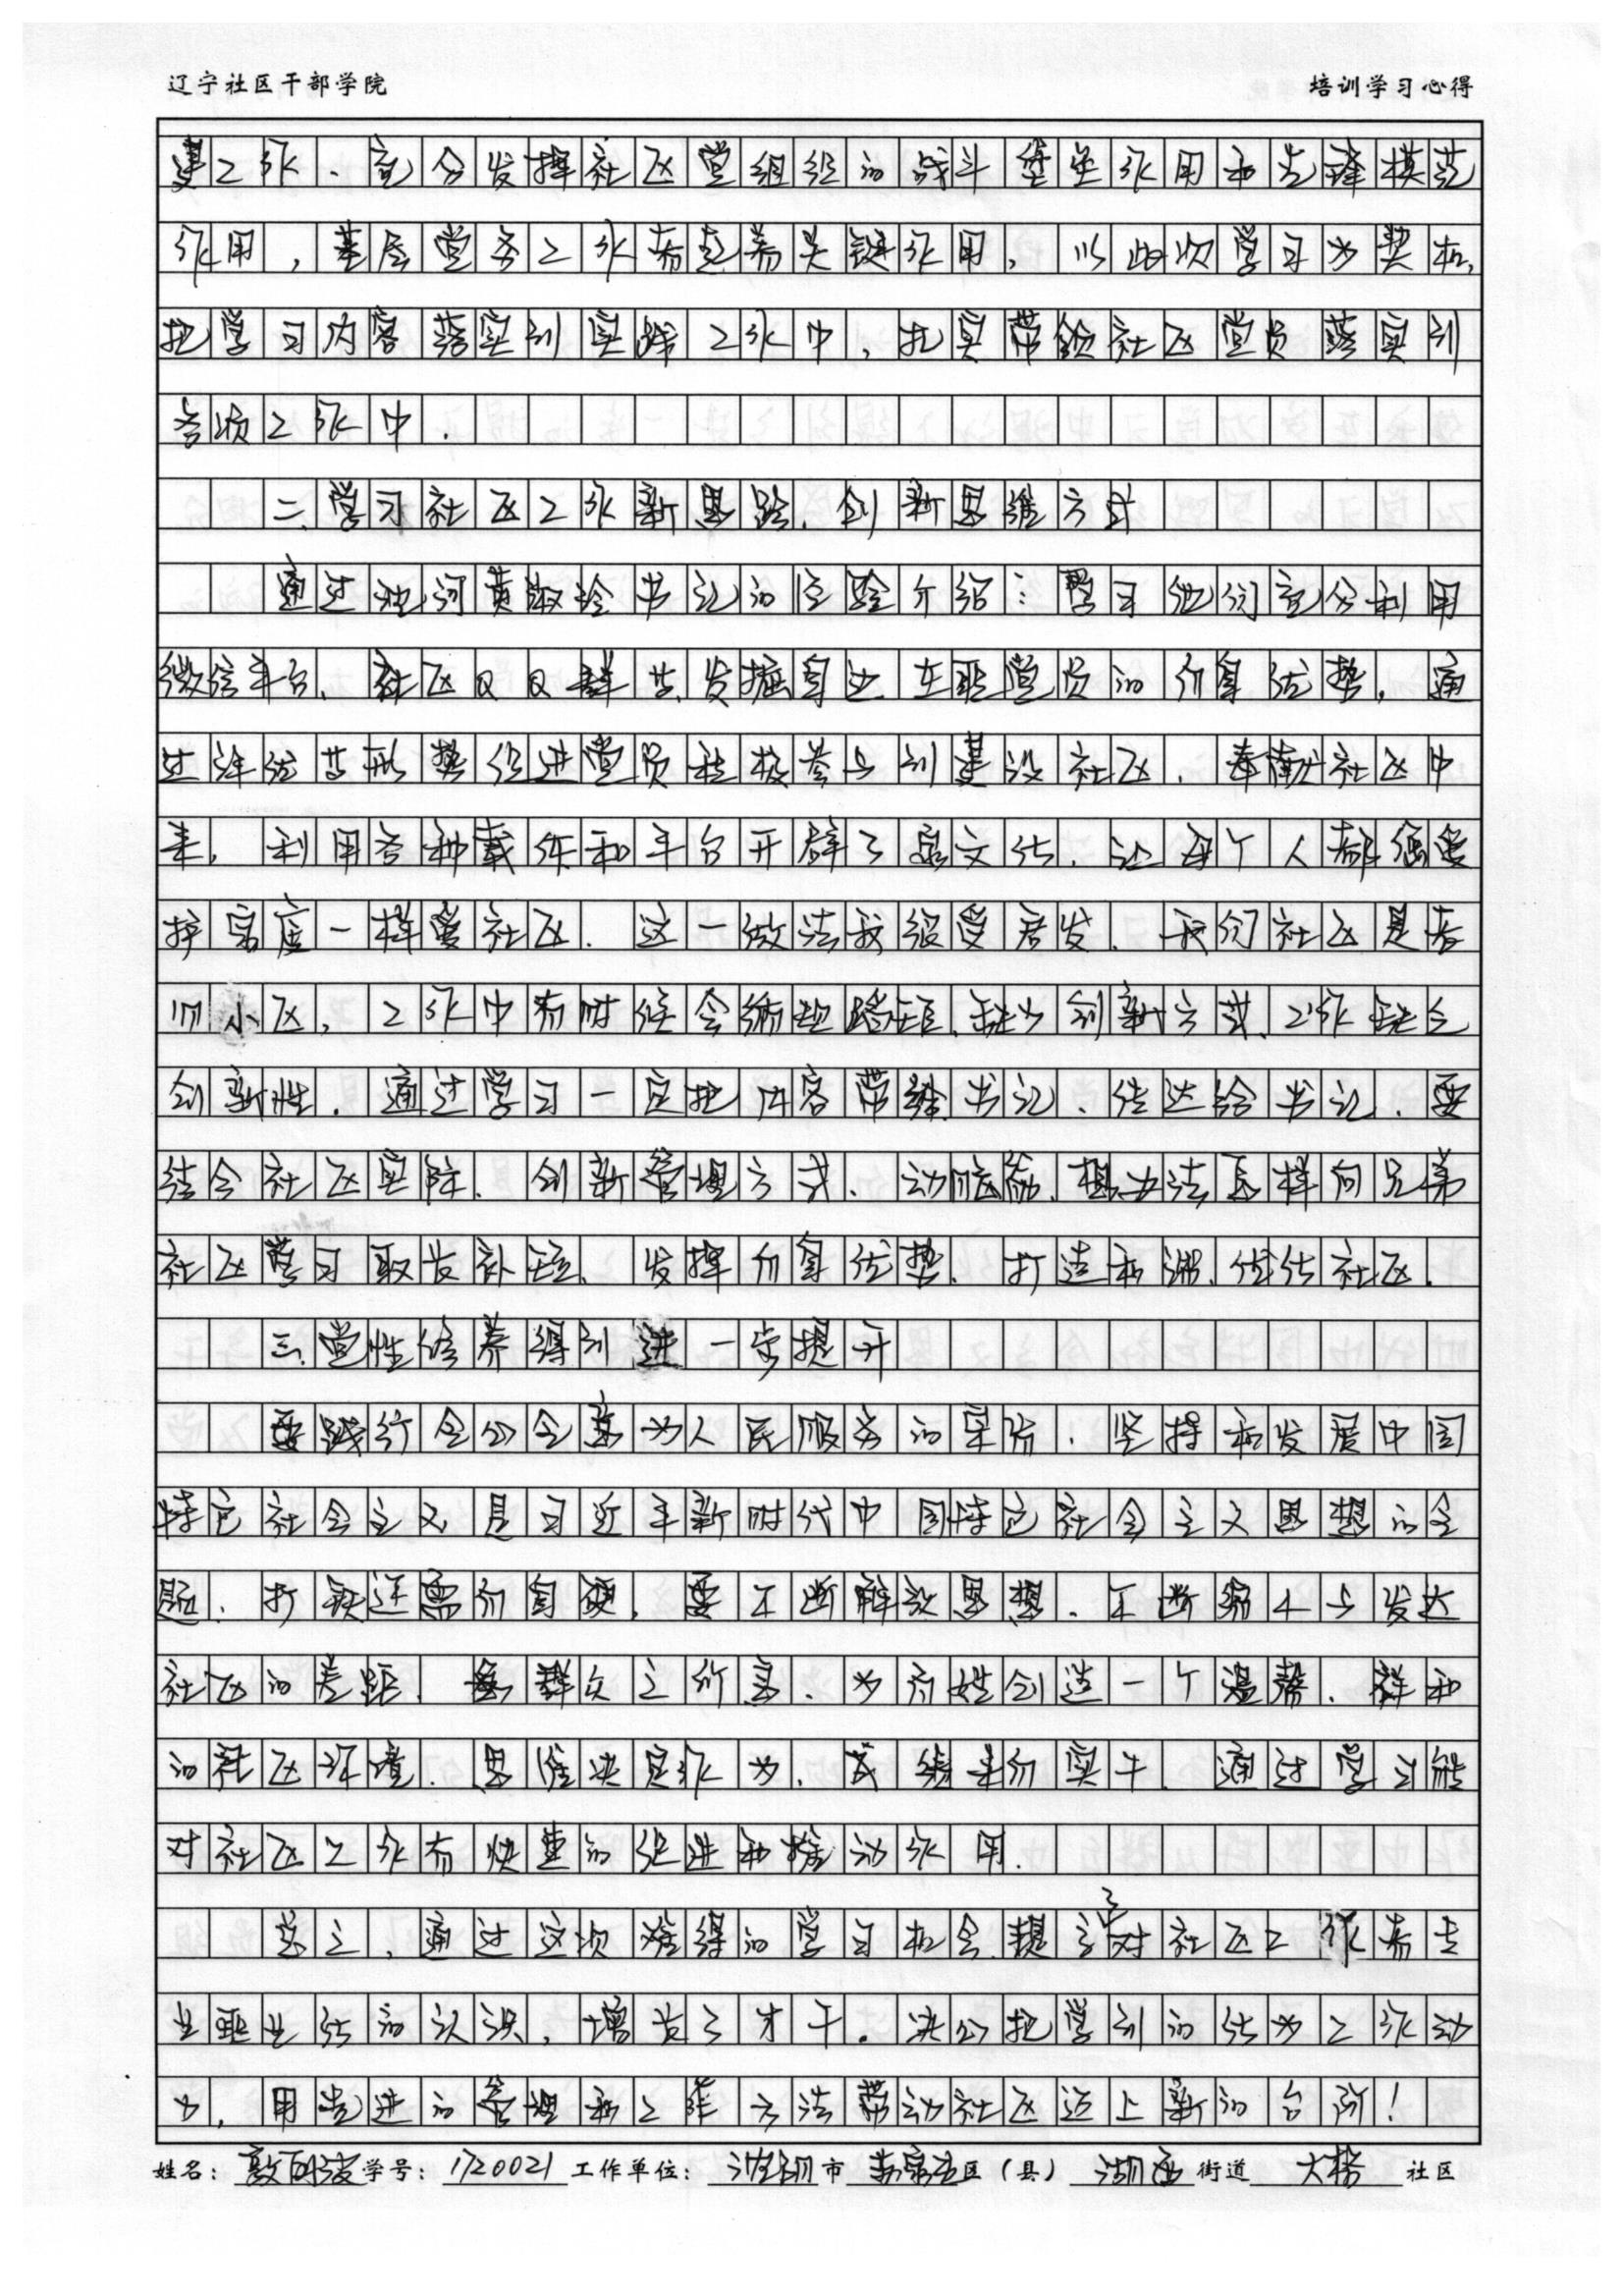 辽宁社区干部学院 培训学习心得
建工作、充分发挥社区党组织的战斗堡垒作用和先锋模范
作用，基层党务工作有克着关键作用，以此次学习为契机，
把学习内容落实到实践工作中，扎实带领社区党员落实到
各项工作中.
二、学习社区工作新思路、创新思维方式
通过沈河黄淑玲书记的经验介绍：学习他们充分利用
微信平台、社区QQ群等、发掘身边、在职党员的价身优势，通
过评优等形势促进党员积极参与到建设社区、奉献社区中
来，利用各种载体和平台开辟了家文化、让每个人都像爱
护家庭一样爱社区. 这一做法我很受启发. 我们社区是老
旧小区，工作中有时候会循规蹈矩、缺少创新方式、工作缺乏
创新性. 通过学习一定把内容带给书记、传达给书记、要
结合社区实际、创新管理方式、动脑筋、想办法怎样向兄弟
社区学习取长补短、发挥价身优势、打造和谐、优化社区.
三、党性修养得到进一步提升
要践行全心全意为人民服务的宗旨：坚持和发展中国
特色社会主义是习近平新时代中国特色社会主义思想的全
题：打铁还需价身硬，要不断解放思想、不断缩小与发达
社区的差距、急群众之所急、为百姓创造一个温馨、祥和
的社区环境. 思维决定作为、成绩来价实干. 通过学习能
对社区工作有快速的促进和推动作用.
总之，通过这次难得的学习机会、提高了对社区工作有专
业职业化的认识，增长了才干。决心把学到的化为工作动
力，用先进的管理和工作方法带动社区迈上新的台阶！
姓名： 学号：1720021 工作单位：沈阳市 苏家屯区（县） 湖西街道 大桥社区